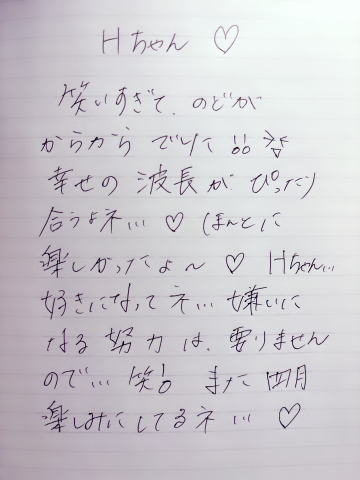 Hちゃん ♡
笑いすぎて、のどが
からから でした !! 
幸せの 波長が ぴったり
合うよネ… ♡ ほんとに
楽しかったよ〜 ♡ Hちゃん…
好きになってネ… 嫌いに
なる努力は、要りません
ので… 笑! また 四月
楽しみにしてるネ… ♡